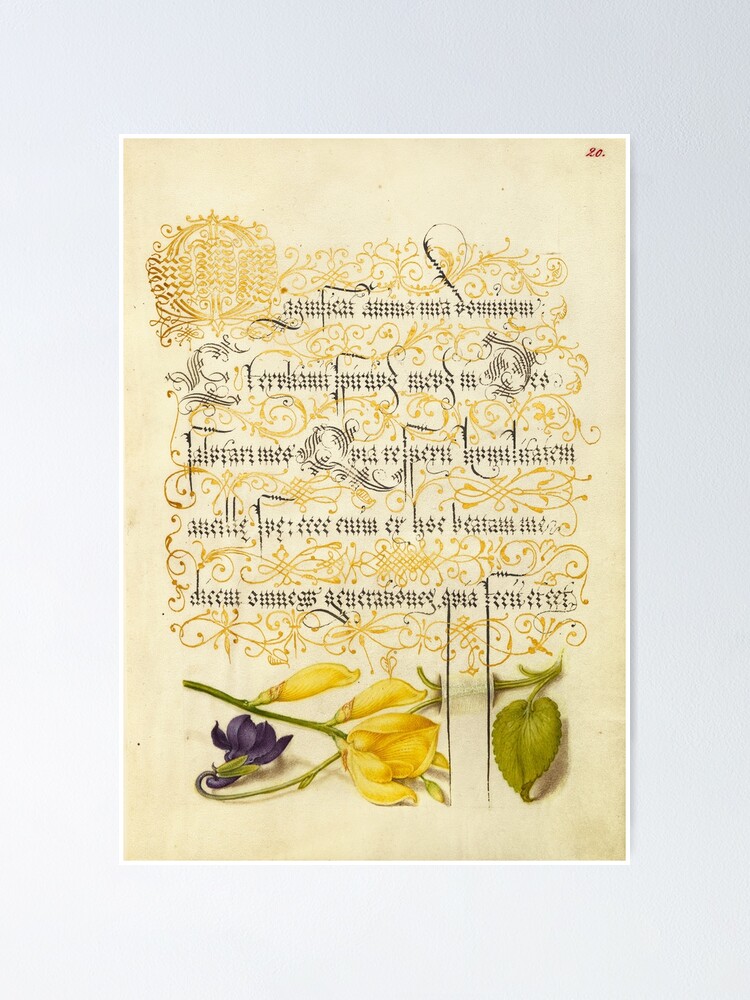 20.
Magnificat anima mea dominum
spiritus meus in Deo
Salutari meo Quia respexit humilitatem
ancillę suę: ecce enim ex hoc beatam me
dicent omnes generationes, quia fecit